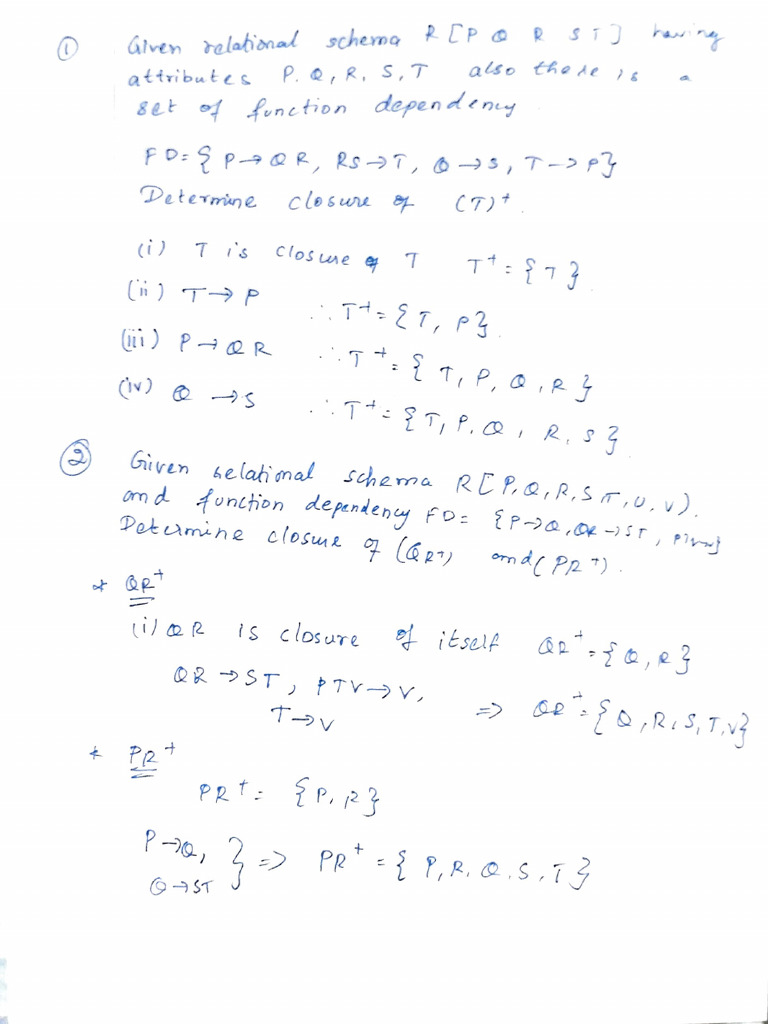 ① Given relational schema R [P Q R S T] having
attributes P. Q, R, S, T also there is a
set of function dependency
FD = { P → QR, RS → T, Q → S, T → P}
Determine closure of (T)+.
(i) T is closure of T T+ = {T}.
(ii) T → P ∴ T+ = {T, P}.
(iii) P → QR ∴ T+ = { T, P, Q, R }
(iv) Q → S ∴ T+ = { T, P, Q, R, S }
② Given relational schema R [ P, Q, R, S, T, U, V).
and function dependency FD = {P → Q, QR → ST,
Determine closure of (QR+) and (PR+).
* QR+
(i) QR is closure of itself QR+ = {Q, R}
QR → ST, PTV → V,
T → V ⇒ QR+ = {Q, R, S, T, V}
* PR+
PR+ = {P, R}
P → Q, } ⇒ PR+ = { P, R, Q, S, T}
Q → ST